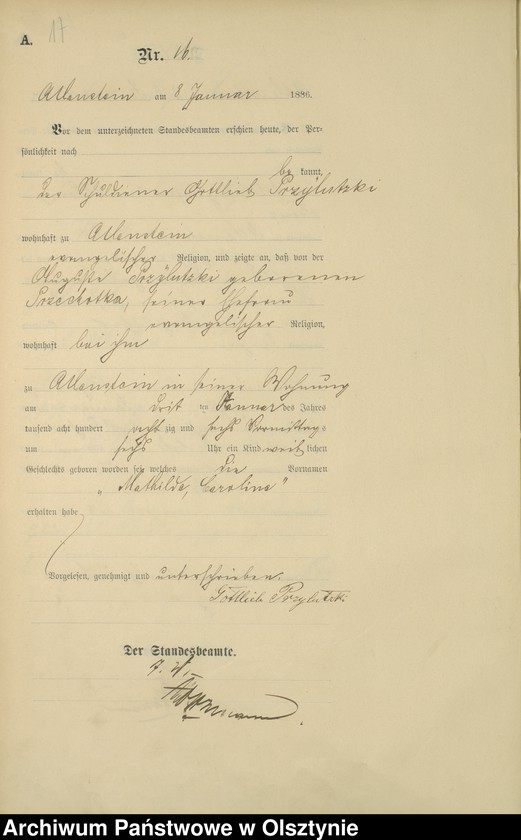 A. 17
Nr. 16.
Allenstein am 8 Januar 1886.
Vor dem unterzeichneten Standesbeamten erschien heute, der Per-
sönlichkeit nach
be kannt,
der Schuldiener Gottlieb Przÿlutzki
wohnhaft zu Allenstein
evangelischer Religion, und zeigte an, daß von der
Auguste Przÿlutzki geborenen
seiner Ehefrau
evangelischer Religion,
wohnhaft bei ihm
zu Allenstein in seiner Wohnung
am ten Januar des Jahres
tausend acht hundert acht zig und sechs Vormittags
um sechs Uhr ein Kind weiblichen
Geschlechts geboren worden sei, welches die Vornamen
„Mathilde, Caroline"
erhalten habe
Vorgelesen, genehmigt und unterschrieben.
Gottlieb Przylutzki
Der Standesbeamte.
Archiwum Państwowe w Olsztynie